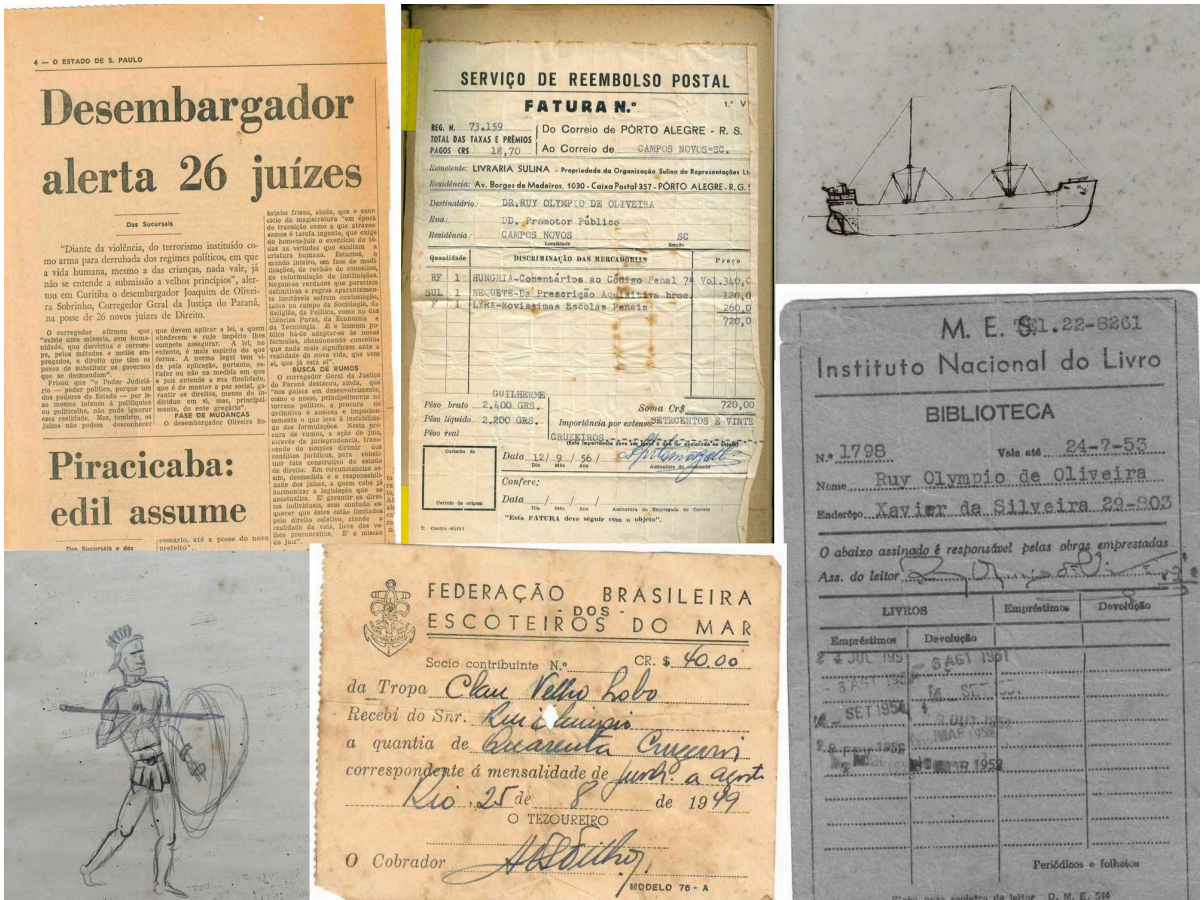 4 — O ESTADO DE S. PAULO
Desembargador
alerta 26 juízes
Das Sucursais
"Diante da violência, do terrorismo instituído co-
mo arma para derrubada dos regimes políticos, em que
a vida humana, mesmo a das crianças, nada vale, já
não se entende a submissão a velhos princípios", aler-
tou em Curitiba o desembargador Joaquim de Olivei-
ra Sobrinho, Corregedor Geral da Justiça do Paraná,
na posse de 26 novos juizes de Direito.
O corregedor afirmou que
"existe uma minoria, sem huma-
nidade, que desvirtua e corrom-
pe, pelos métodos e meios em-
pregados, o direito que têm os
povos de substituir os governos
que se desmandam".
Frisou que "o Poder Judiciá-
rio — poder político, porque um
dos poderes do Estado — por is-
so mesmo infenso à politiquice
ou politicalha, não pode ignorar
essa realidade. Mas, também, os
juízes não podem desconhecer
que devem aplicar a lei, a quem
obedecem e cujo império lhes
compete assegurar. A lei, no
entanto, é mais espírito do que
forma. A norma legal tem vi-
da pela aplicação, portanto, es-
tiar ou não na medida em que
o juiz entende a sua finalidade,
que é de manter a paz social, ga-
rantir os direitos, menos do in-
divíduo em si, mas, principal-
mente, do ente gregário".
FASE DE MUDANÇAS
O desembargador Oliveira So-
brinho frisou, ainda, que o exer-
cício da magistratura "em época
de transição como a que atraves-
samos é tarefa ingente, que exige
do homem-juiz o exercício de tô-
das as virtudes que exaltam a
criatura humana. Estamos, o
mundo inteiro, em fase de modi-
ficações, de revisão de conceitos,
de reformulação de instituições.
Negam-se verdades que pareciam
definitivas e regras aparentemen-
te imutáveis sofrem contestação,
tanto no campo da Sociologia, da
Religião, da Política, como no das
Ciências Puras, da Economia e
da Tecnologia. E o homem pú-
blico há-de adaptar-se às novas
fórmulas, abandonando conceitos
que nada mais significam ante a
realidade da nova vida, que vem
aí, que já está aí".
BUSCA DE RUMOS
O corregedor Geral da Justiça
do Paraná destacou, ainda, que
"nos países em desenvolvimento,
como o nosso, principalmente no
terreno político, a procura do
definitivo é ansiosa e impacien-
temente o que leva à instabilida-
de das formulações. Nesta pro-
cura de rumos, a ação do juiz,
através da jurisprudência, trans-
cende do simples dirimir dos
conflitos jurídicos, para consti-
tuir fato construtivo do estado
de direito. Em circunstâncias as-
sim, desmedida é a responsabili-
dade dos juízes, a quem cabe já
harmonizar a legislação que se
desatualiza. E' garantir os direi-
tos individuais, sem contudo es-
quecer que êstes estão limitados
pelo direito coletivo, atende a
realidade da vida, livre dos ve-
lhos preconceitos. E' a missão
do juiz".
Piracicaba:
edil assume
Das Sucursais e dos
ressario, até a posse do novo
prefeito".
SERVIÇO DE REEMBOLSO POSTAL
FATURA N.º 1.ª V
REG. N. 73.159 Do Correio de PÔRTO ALEGRE - R. S.
TOTAL DAS TAXAS E PRÊMIOS
PAGOS CR$ 18,70 Ao Correio de CAMPOS NOVOS-SC.
Remetente: LIVRARIA SULINA - Propriedade da Organização Sulina de Representações Lt
Residência: Av. Borges de Medeiros, 1030 - Caixa Postal 357 - PÔRTO ALEGRE - R.G.S
Destinatário: DR.RUY OLYMPIO DE OLIVEIRA
Rua: DD. Promotor Público
Residência: CAMPOS NOVOS SC
Localidade Estado
Quantidade DISCRIMINAÇÃO DAS MERCADORIAS Preço
RF 1 HUNGRIA-Comentários ao Código Penal 7º Vol.340,0
SUL 1 NEQUETE-Da Prescrição Aquisitiva broc. 120,0
P 1 LYRA-Novissimas Escolas Penais 260,0
720,0
GUILHERME
Pêso bruto 2,400 GRS. Soma Cr$ 720,00
Pêso líquido 2,200 GRS. Importância por extenso: SETECENTOS E VINTE
Pêso real CRUZEIROS
Carimbo do
Data 12/ 9 / 56/
Dia Mês Ano Assinatura do remetente
Confere:
Data / / /
Correio de origem Dia Mês Ano Assinatura do Empregado do Correio
"Esta FATURA deve seguir com o objeto".
T. Centro -45161
M. E. S. TEl.22-8261
Instituto Nacional do Livro
BIBLIOTECA
N.º 1798 Vale até 24-7-53
Nome Ruy Olympio de Oliveira
Enderêço Xavier da Silveira 29-803
O abaixo assinado é responsável pelas obras emprestadas
Ass. do leitor
LIVROS Empréstimos Devolução
Empréstimos Devolução
2 4 JUL 195 - 6 AGT 1951
SET 1951
MAR 1952
Periódicos e folhetos
FEDERAÇÃO BRASILEIRA
- DOS -
ESCOTEIROS DO MAR
Socio contribuinte N.º CR. $ 40.00
da Tropa Clan Velho Lobo
Recebi do Snr. Rui Olimpio
a quantia de Quarenta Cruzeiros
correspondente á mensalidade de junho a agosto
Rio, 25 de 8 de 1949
O TEZOUREIRO
O Cobrador
MODELO 76 - A